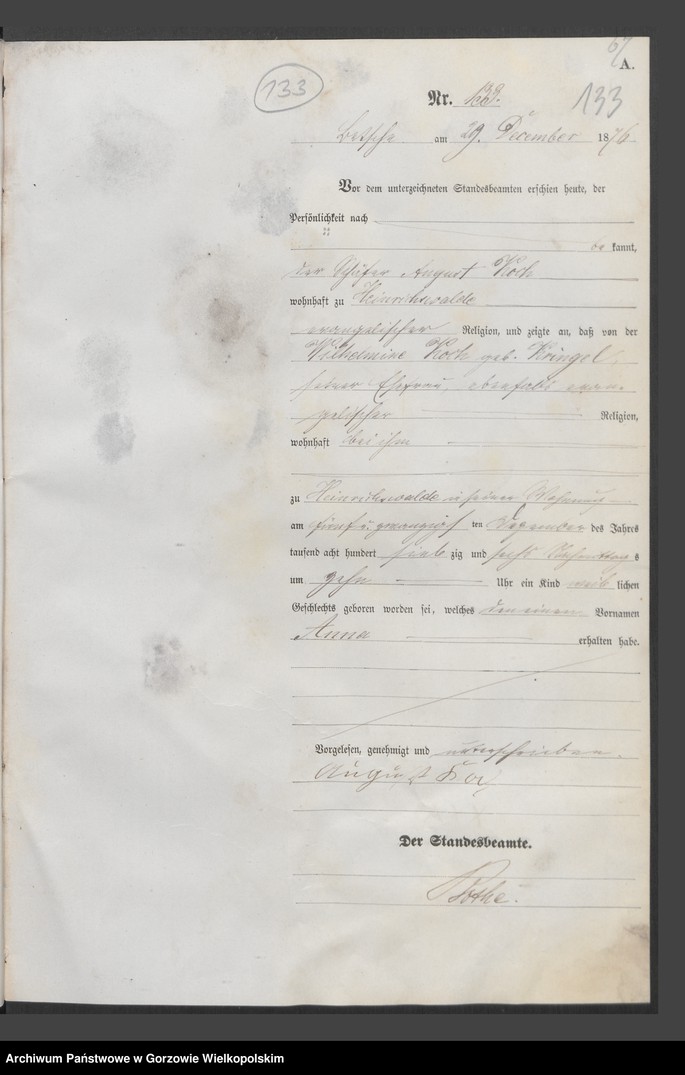 A.
133
Nr. 133.
133
Betsche am 29. December 1876.
Vor dem unterzeichneten Standesbeamten erschien heute, der
Persönlichkeit nach
be kannt,
der Schäfer August Koch
wohnhaft zu Heinrichswalde
evangelischer Religion, und zeigte an, daß von der
Wilhelmine Koch geb. Kringel,
seiner Ehefrau, ebenfalls evan-
gelischer Religion,
wohnhaft bei ihm
zu Heinrichswalde in seiner Wohnung
am fünf u. zwanzigsten Dezember des Jahres
tausend acht hundert sieb zig und sechs Vormittags
um zehn Uhr ein Kind weib lichen
Geschlechts geboren worden sei, welches den einen Vornamen
Anna erhalten habe.
Vorgelesen, genehmigt und unterschrieben.
August Koch
Der Standesbeamte.
Archiwum Państwowe w Gorzowie Wielkopolskim